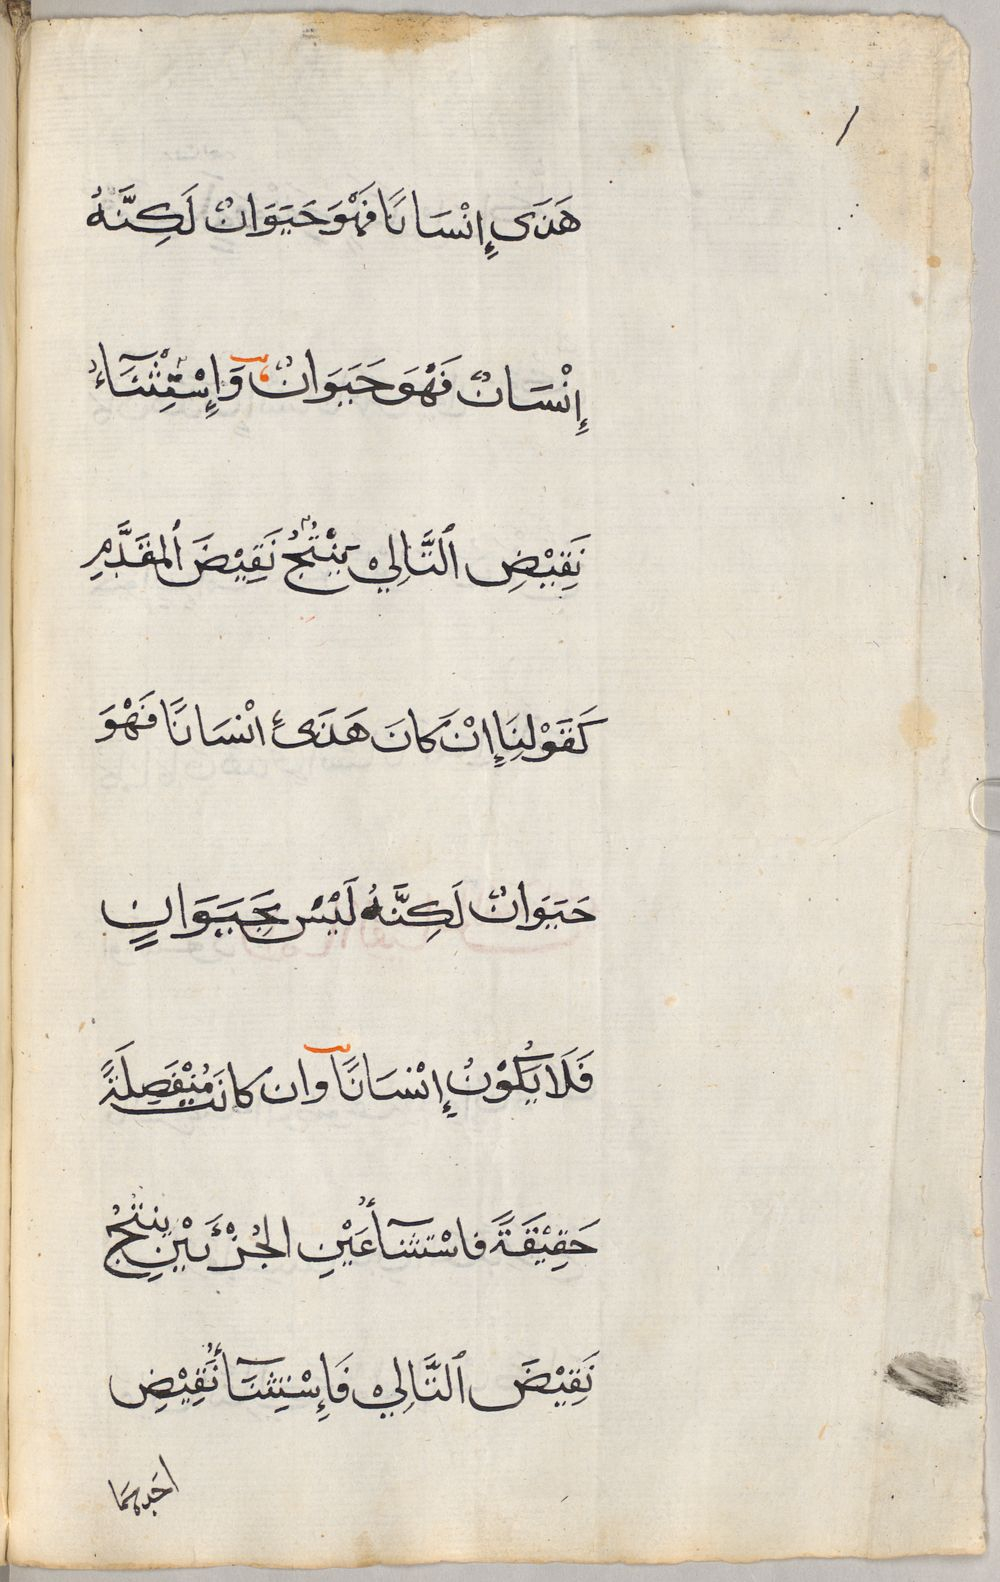 هَذَى إِنْسَانًا فَهْوَ حَيَوَانٌ لَكِنَّهُ
إِنْسَانٌ فَهْوَ حَيَوَانٌ، وَإِسْتِثْنَآءُ
نَقِيْضِ ٱلتَّالِيْ يُنْتِجُ نَقِيْضَ ٱلمقَدَّمِ
كَقَوْلِنَا إِنْ كَانَ هَذَىٔ انْسَانًا فَهْوَ
حَيَوَانٌ لَكِنَّهُ لَيْسَ بِحَيَوَانٍ
فَلَا يَكُوْنُ إِنْسَانًا وان كانَت مُنْفَصِلَةً
حَقِيْقَةً فاسْتثنَآأُ عَيْنِ الجُزْءَيْنِ ينتجُ
نَقِيْضَ ٱلتَّالِيْ فَإِسْتِثنَآأُ نَقِيْضِ
احَدهمَا